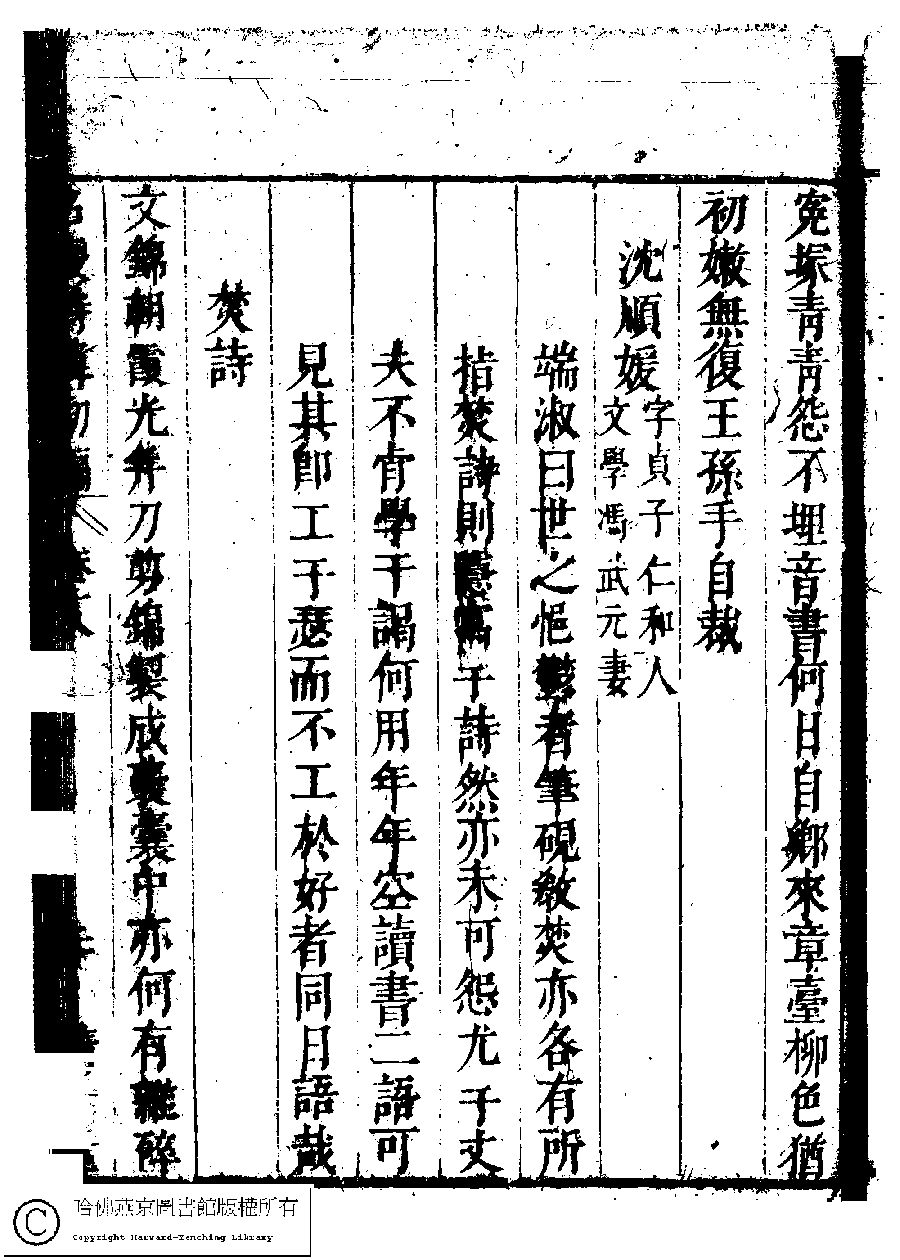 冤塚青青怨不埋音書何日自鄉來章臺柳色猶
初嫩無復王孫手自裁
沈順媛字貞子仁和人
文學馮武元妻
端淑曰世之悒鬱者筆硯敢焚亦各有所
指焚詩則憑于詩然亦未可怨尤于丈
夫不肯學干謁何用年年空讀書二語可
見其卽工于瑟而不工於好者同日語哉
焚詩
文錦朝霞光幷刀剪錦製成囊囊中亦何有雜碎
哈佛燕京圖書館版權所有
Copyright Harvard-Yenching Library